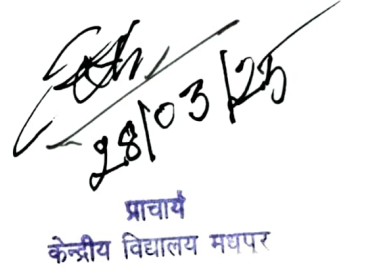 28/03/23
प्राचार्य
केन्द्रीय विद्यालय मधपर